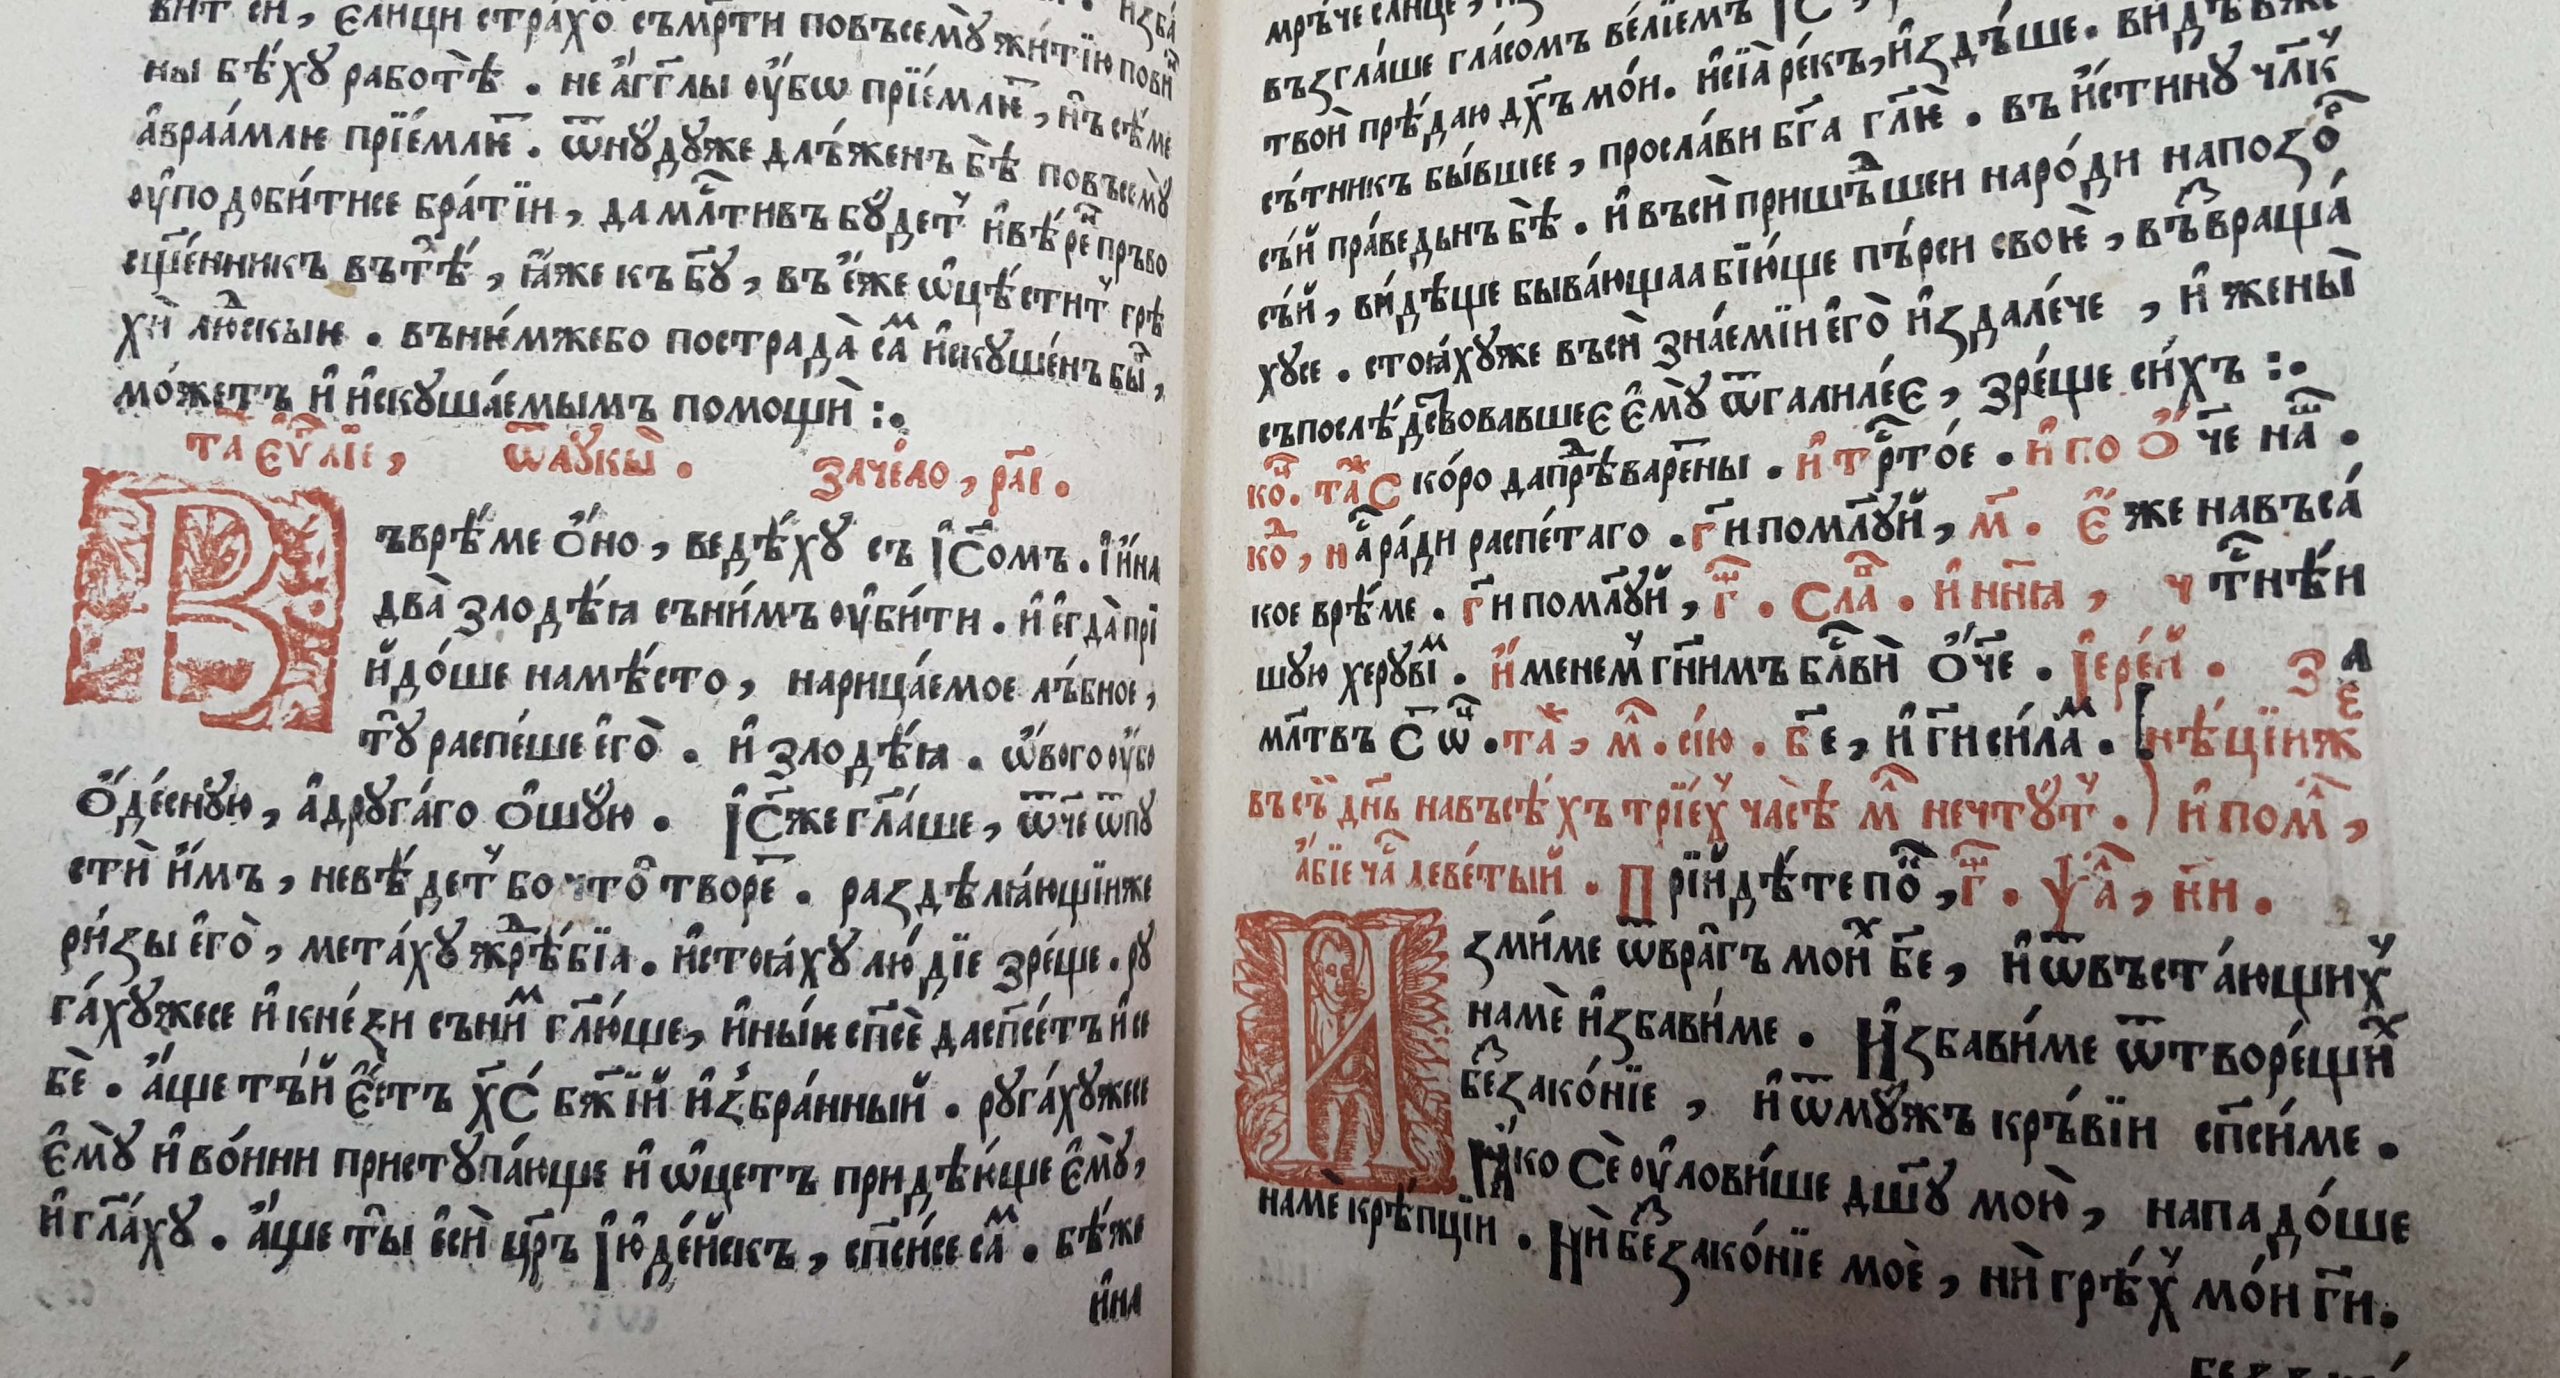 вит си, є҆лици стра́хо съмр҃ти повъсемꙋ̀ жи́тїю пови́н
ны бѣ́хꙋ работѣ̀ . не а҆́гг҃лы оу҆́бѡ прїе́млѥ҃т , н҆ъ сѣ́ме
а҆враа́млѥ прїе́млѥ҃т . ѿнꙋ́дꙋже длъ́женъ бѣ̀ повъсемꙋ̀
оу҆подоби́тисе бра́тїи , да мл҃тивъ бꙋ́детъ и҆ вѣ́рѐн пръво
сщ҃е́нникъ вътѣ́х , ꙗ҆́же къ бг҃ꙋ , въ є҆́же ѡ҆цѣ́стит грѣ
хѝ лю́дскыѥ . въни́мжебо пострада̀ са́м и҆скꙋше́нъ бы́в ,
мо́жетъ и҆ и҆скꙋша́емымъ помощѝ :.
та́ж є҆ѵ҃лїе , ѿ лꙋкы̀ . зачело , ра҃і .
Въврѣ́ме ѻ҆́но , ведѣ́хꙋ съ І҆С҃омъ . і҆ и҆́на
два̀ злодѣ́ꙗ съни́мъ оу҆би́ти . и҆ є҆гда̀ прі
и҆до́ше намѣ́сто , нарица́емое лъ́бное ,
тꙋ̀ распе́ше є҆го̀ . и҆ злодѣ́ꙗ . ѡ҆́вого оу҆́бо
ѻ҆́деснꙋ́ю , а҆дрꙋга́го ѻ҆шꙋ́ю . І҆С҃же гл҃а́ше , ѿч҃е ѿпꙋ
стѝ и҆́мъ , невѣ́детъ бо что̀ творе҃т . раздѣлꙗ́ющїиже
ри́зы є҆го̀ , мета́хꙋ жрѣ́бїа . и҆стоꙗ́хꙋ лю́дїе зре́ще . рꙋ
га́хꙋжесе и҆ кне́зи съни́м гл҃ю́ще , и҆ны́ѥ сп҃сѐ дасп҃се́тъ и҆ се
бѐ . а҆́ще тъ́й є҆́стъ Х҃С бж҃їй и҆збра́нный . рꙋга́хꙋжесе
є҆мꙋ̀ и҆ во́ини пристꙋпа́юще и҆ ѡ҆́цетъ придѣ́юще є҆мꙋ̀ ,
и҆ гл҃а́хꙋ . а҆́ще ты̀ є҆сѝ цр҃ъ І҆ю҆де́йскъ , сп҃си́се са́м . бѣ́же
и҆на
възгла́ше гла́сомъ ве́лїемъ І҆С҃ ,
твоѝ прѣ́даю дх҃ъ мо́й . и҆сїа̀ ре́къ , и҆́здъше . ви́дѣвже
съ́тникъ бы́вшее , просла́ви бг҃а гл҃ѥ̀ . въ и҆́стинꙋ чл҃к
съ́й пра́ведьнъ бѣ̀ . и҆ въсѝ пришъ́дшеи наро́ди напозо́р
съ́й , ви́дѣще быва́ющаа бїю́ще пъ́рси своѥ̀ , въ́звраща́
хꙋсе . стоꙗ́хꙋже въсѝ зна́емїи є҆го̀ и҆здале́че , и҆ жены̀
съпослѣ́дствовавшеє є҆мꙋ̀ ѿгалиле́є , зре́ще си́хъ :.
ко́н . та́ж Ско́ро дапрѣ́дваре҃ны . и҆ трⷭ҇то́е . и҆ по ѻ҆́че на́ш .
ко́д , на́с ра́ди распе́таго . г҃и помл҃ꙋй , м҃ . Є҆́же навъса́
кое врѣ́ме . г҃и помл҃ꙋй , г҃ . Сла́в . и҆ нн҃ꙗ , чтⷭ҇нѣи
шꙋю херꙋві́м . и҆́менемъ гн҃имъ бл҃вѝ ѻ҆́ч҃е . І҆ере́й . За
мл҃твъ С҃ ѡ . та́ж , мⷧ҇ . сію . б҃е , и҆ г҃и си́лам . [нѣ́цїиже
въ съ̀ дн҃ь навъсѣ́хъ трїе́х часѣ́ мⷧ҇ нечтꙋ́тъ . ) и҆ помⷧ҇ ,
а҆́бїе ча́с деве́тый . Прїидѣ́те по́к , г҃ . Ѱа́л , н҃и .
Изми́ме ѿвра́гъ мои́х б҃е , и҆ ѿвъста́ющих
намѐ и҆збави́ме . И҆збави́ме ѿтворе́щих
беззако́нїе , и҆ ѿмꙋжъ кръ́вїи сп҃си́ме .
Ꙗ҆́ко сѐ оу҆лови́ше дш҃ꙋ мою̀ , нападо́ше
намѐ крѣ́пцїи . Нѝ беззако́нїе моѐ , нѝ грѣ́х мо́и г҃и .